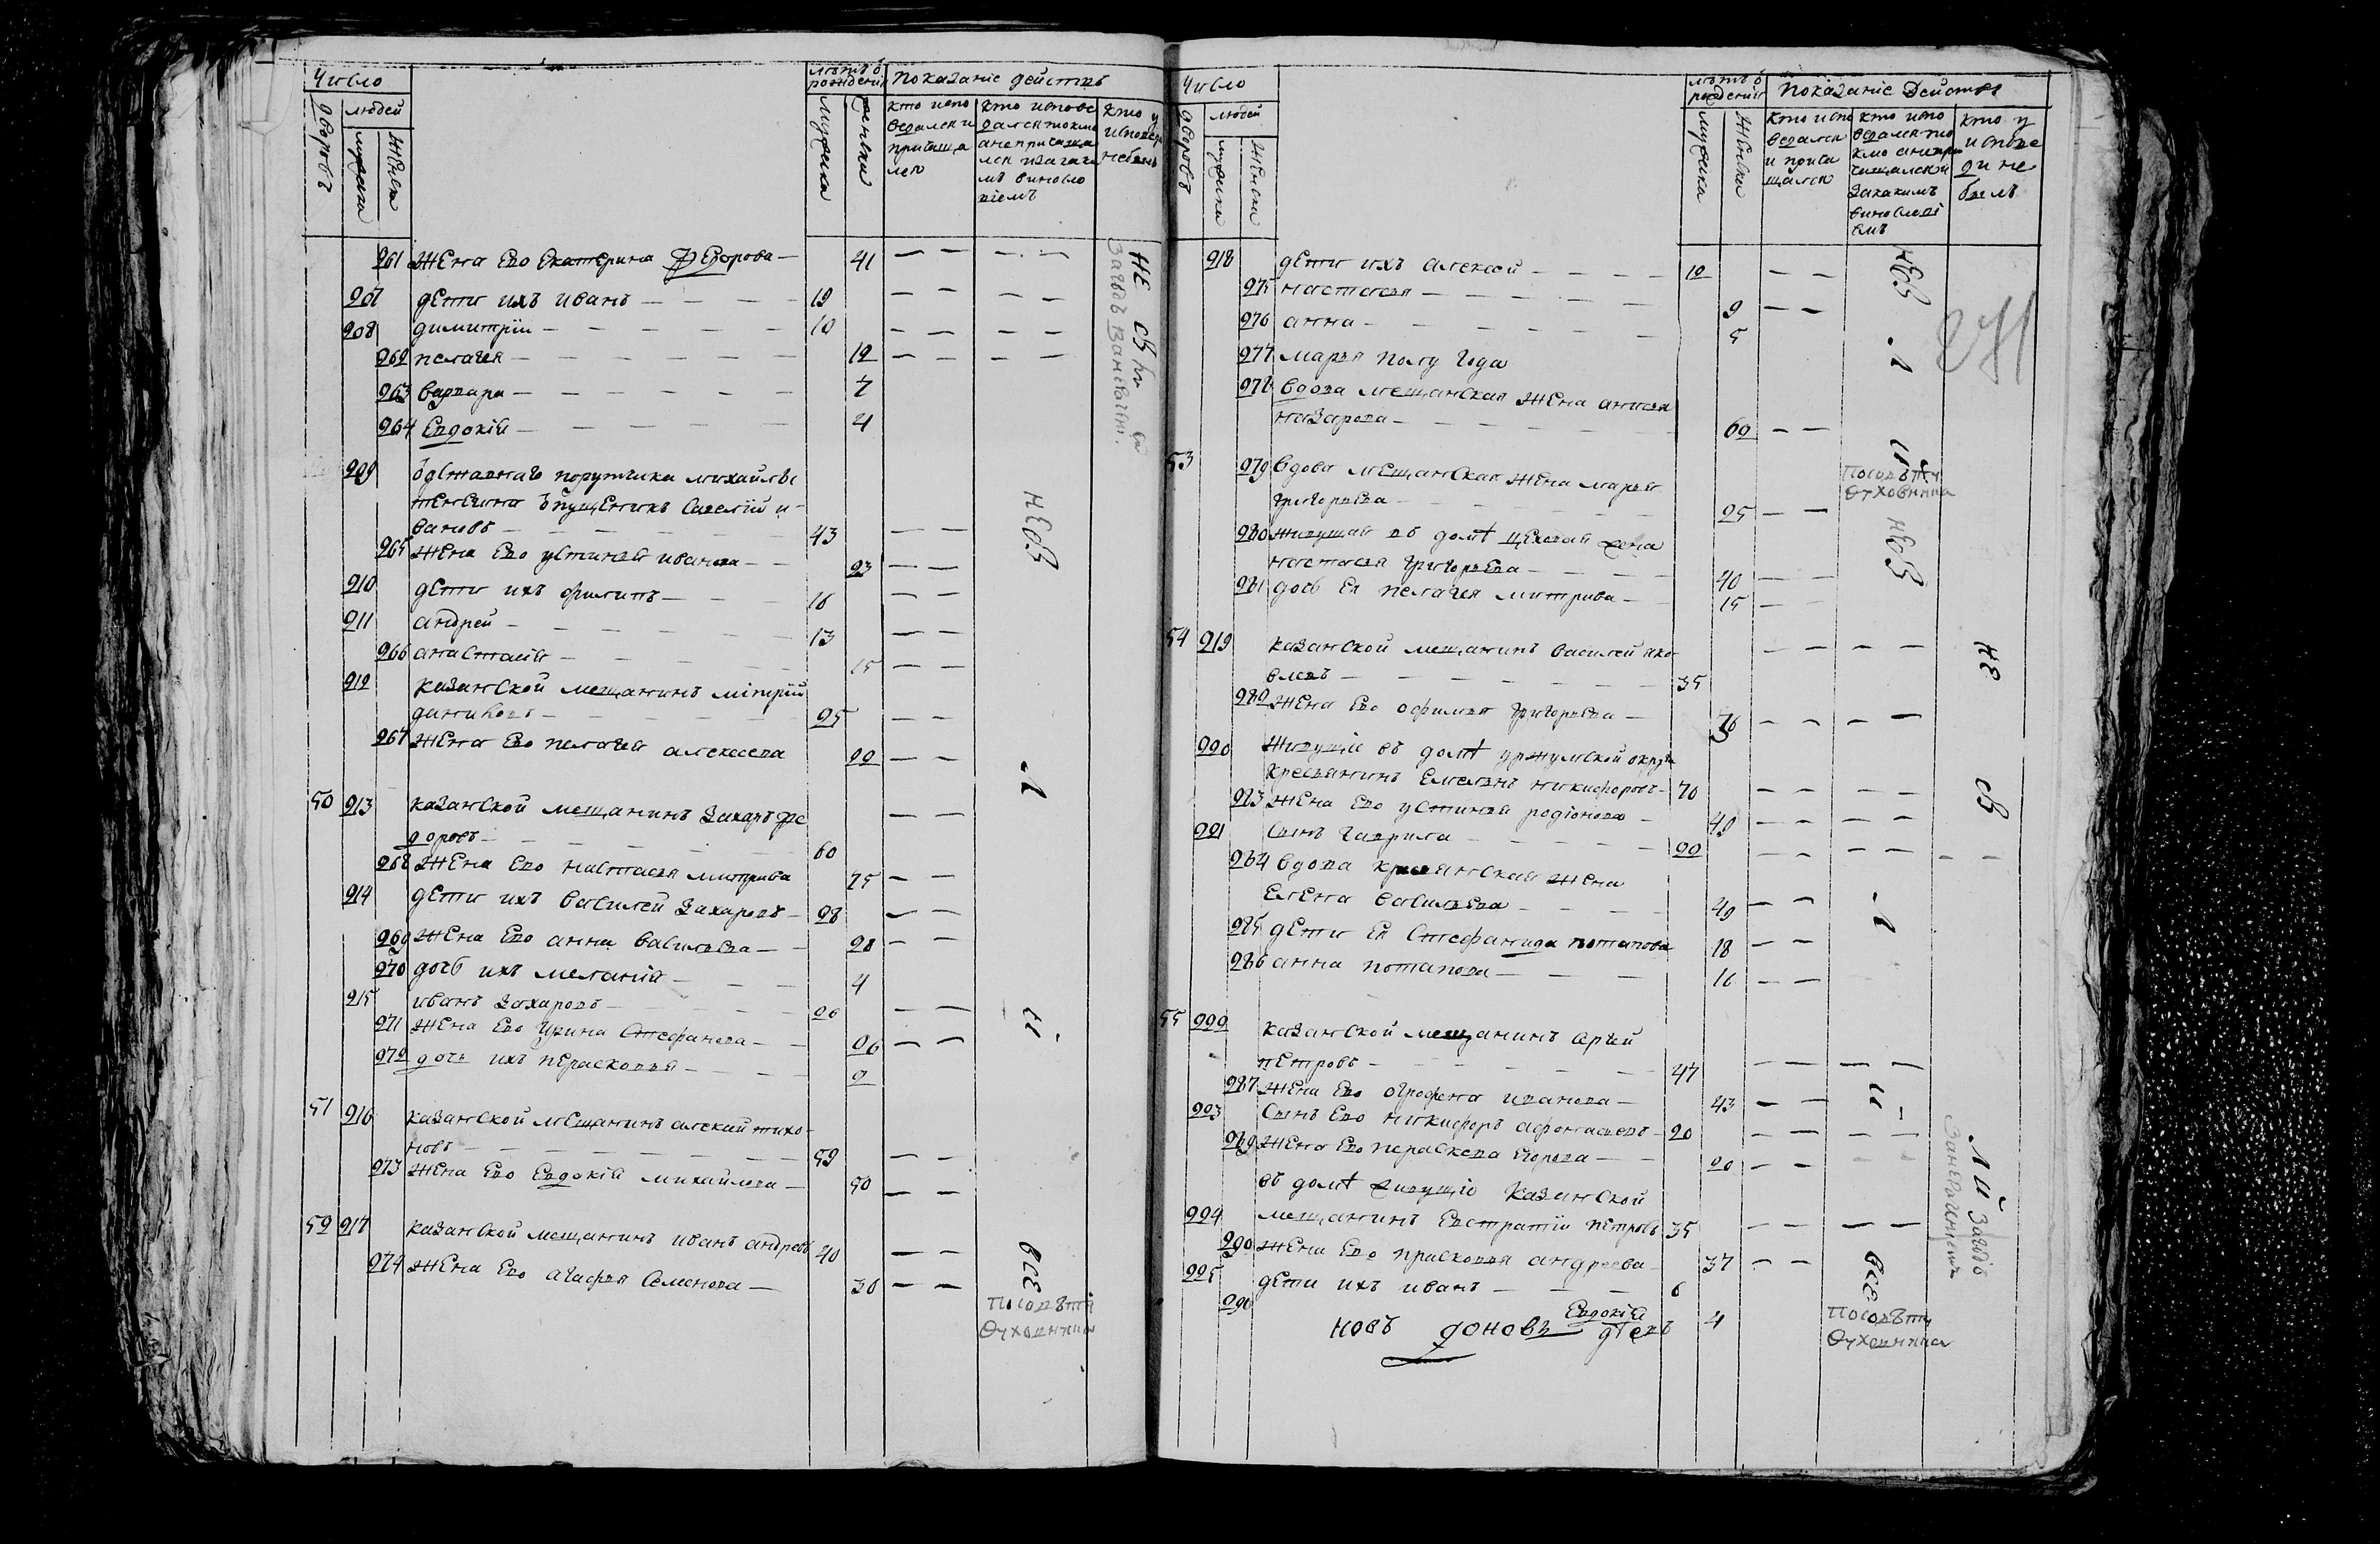 Число
дворовъ
людей
мужска
женска
лѣтъ ѿ рождения
мужска
женска
Показание действъ
кто испо
ведался и
причаща
лся
кто испове
дался токмо
а не причаща
лся и за каки
мъ винosло
виемъ
кто у
исповеди
не былъ
261 жена Ево Екатерина Федорова — 41
207 дети ихъ иванъ — 19
208 димитрiи — 10
262 пелагея — 12
263 варвара — 7
264 Евдокiя — 4
209 ѿставнаго порутчика михаилы
ѿпущеникъ савелiй и-
вановъ — 43
265 жена Ево устинья иванова — 23
210 дети ихъ филипъ — 16
211 андрей — 13
266 анастасия — 15
212 казанской мещанинъ митрий
даниловъ — 25
267 жена Ево пелагея алексеева 22
50 213 казанской мещанинъ захаръ фе
доровъ — 60
268 жена Ево настасья митрива 75
214 дети ихъ василей захаровъ — 28
269 жена Ево анна васильева — 28
270 дочь ихъ меланiя — 4
215 иванъ захаровъ — 26
271 жена Ево ирина стефанова — 26
272 дочь ихъ перасковья — 2
51 216 казанской мещанинъ алексий тихо-
новъ — 59
273 жена Ево Евдокiя михайлова — 50
52 217 казанской мещанинъ иванъ андревъ 40
274 жена Ево агафья семенова — 30
НЕ
НЕОВ
Л
И
ВСЕ
посовѣту
духовника
Число
дворовъ
людей
мужска
женска
лѣтъ ѿ рождения
мужска
женска
Показание Действъ
кто испо
ведался
и прича
щался
кто испо
ведался то
кмо а не при
чащался и
за какимъ
винословi
емъ
кто у
испове
ди не
былъ
218 дети ихъ алексей — 12
275 настасья — 9
276 анна — 5
277 марья полу года
278 вдова мещанская жена анисья
назарова — 62
53 279 вдова мещанская жена марья
григорьева — 25
280 живущая въ домѣ цеховая жена
настасья григорьева — 40
281 дочь Ея пелагея митрива — 15
54 219 казанской мещанинъ василей яко-
влевъ — 35
282 жена Ево офимья григорьева — 36
220 живущiе въ домѣ уржумской округи
кресьянинъ Емельянъ никифоровъ — 70
283 жена Ево устинья родiонова — 49
221 сынъ гаврила — 20
284 вдова кресьянская жена
Елена васильева — 49
285 дети Ея стефанида потапова 18
286 анна потапова — 16
55 222 казанской мещанинъ сргий
петровъ — 47
287 жена Ево огрофена иванова — 43
223 сынъ Ево никифоръ афонасьевъ — 20
289 жена Ево пераскева Егорова — 20
въ домѣ живущiе казанской
224 мещанинъ Евстратiи петровъ 35
290 жена Ево прасковья андреева 37
225 дети ихъ иванъ — 6
290 Евдокiя 4
новъ доновъ
посовѣту
духовника
посовѣту
духовника